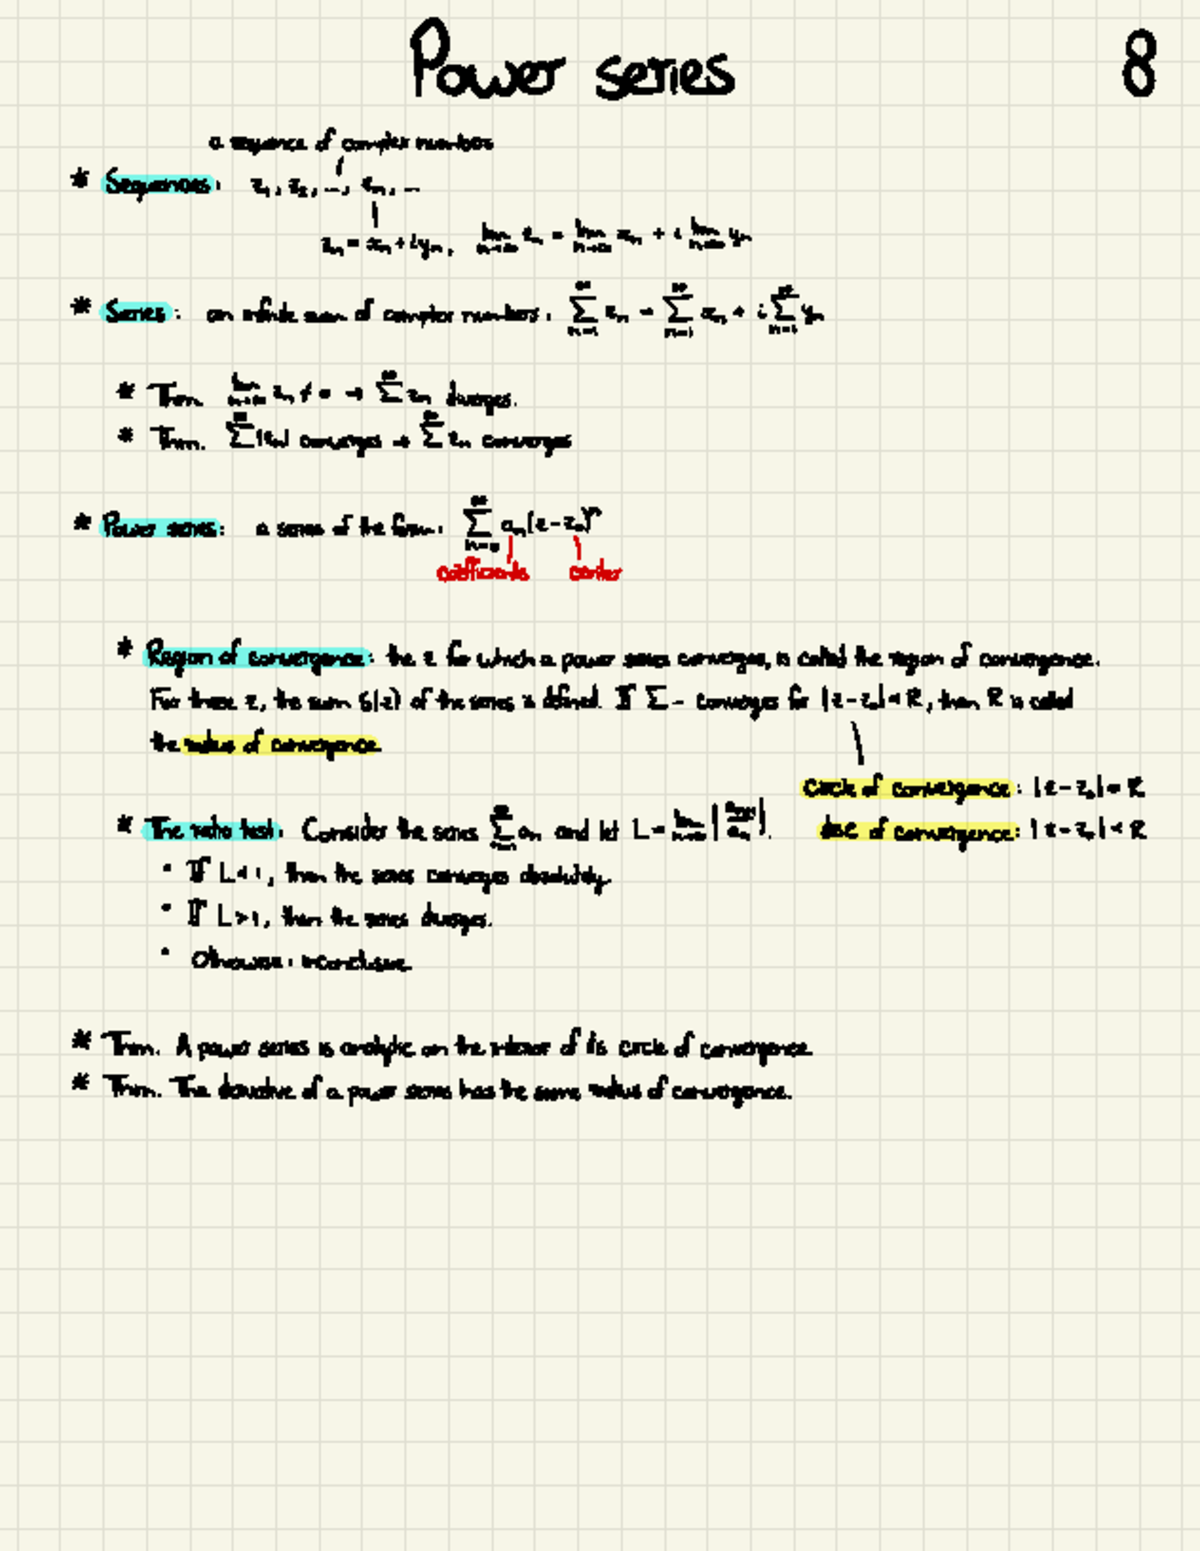 Power series 8
a sequence of complex numbers
* Sequences: z₁, z₂, ..., zₙ, ...
zₙ = xₙ + iyₙ, lim n→∞ zₙ = lim n→∞ xₙ + i lim n→∞ yₙ
* Series: an infinite sum of complex numbers: ∞ Σ n=1 zₙ = ∞ Σ n=1 xₙ + i ∞ Σ n=1 yₙ
* Thm. lim n→∞ zₙ ≠ 0 → ∞ Σ zₙ diverges.
* Thm. ∞ Σ |zₙ| converges → ∞ Σ zₙ converges
* Power series: a series of the form: ∞ Σ n=0 aₙ(z-z₀)ⁿ
coefficients center
* Region of convergence: the z for which a power series converges, is called the region of convergence.
For these z, the sum S(z) of the series is defined. If Σ - converges for |z-z₀| < R, then R is called
the radius of convergence.
circle of convergence: |z-z₀| = R
* The ratio test: Consider the series ∞ Σ aₙ and let L = lim n→∞ |aₙ₊₁/aₙ|. disc of convergence: |z-z₀| < R
• If L < 1, then the series converges absolutely.
• If L > 1, then the series diverges.
• Otherwise: inconclusive.
* Thm. A power series is analytic on the interior of its circle of convergence.
* Thm. The derivative of a power series has the same radius of convergence.